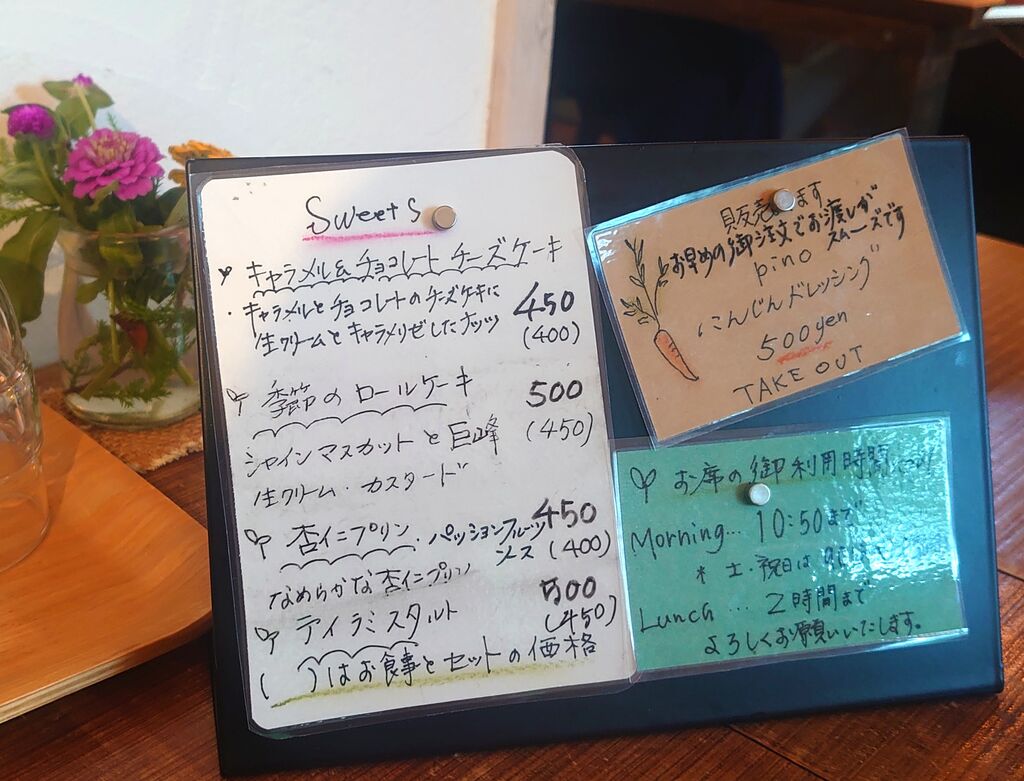 Sweets
キャラメル&チョコレートチーズケーキ
・キャラメルとチョコレートのチーズケーキに
450
生クリームとキャラメリゼしたナッツ
(400)
季節のロールケーキ
500
シャインマスカットと巨峰
(450)
生クリーム・カスタード
杏仁プリン・パッションフルーツ
ソース
450
(400)
なめらかな杏仁プリン
ティラミスタルト
500
(450)
( )はお食事とセットの価格
販売 ます
お早めの御注文でお渡しが
スムーズです
pino
にんじんドレッシング
500yen
TAKE OUT
お席の御利用時間
Morning... 10:50まで
※土・祝日は
Lunch ... 2時間まで
よろしくお願いいたします。